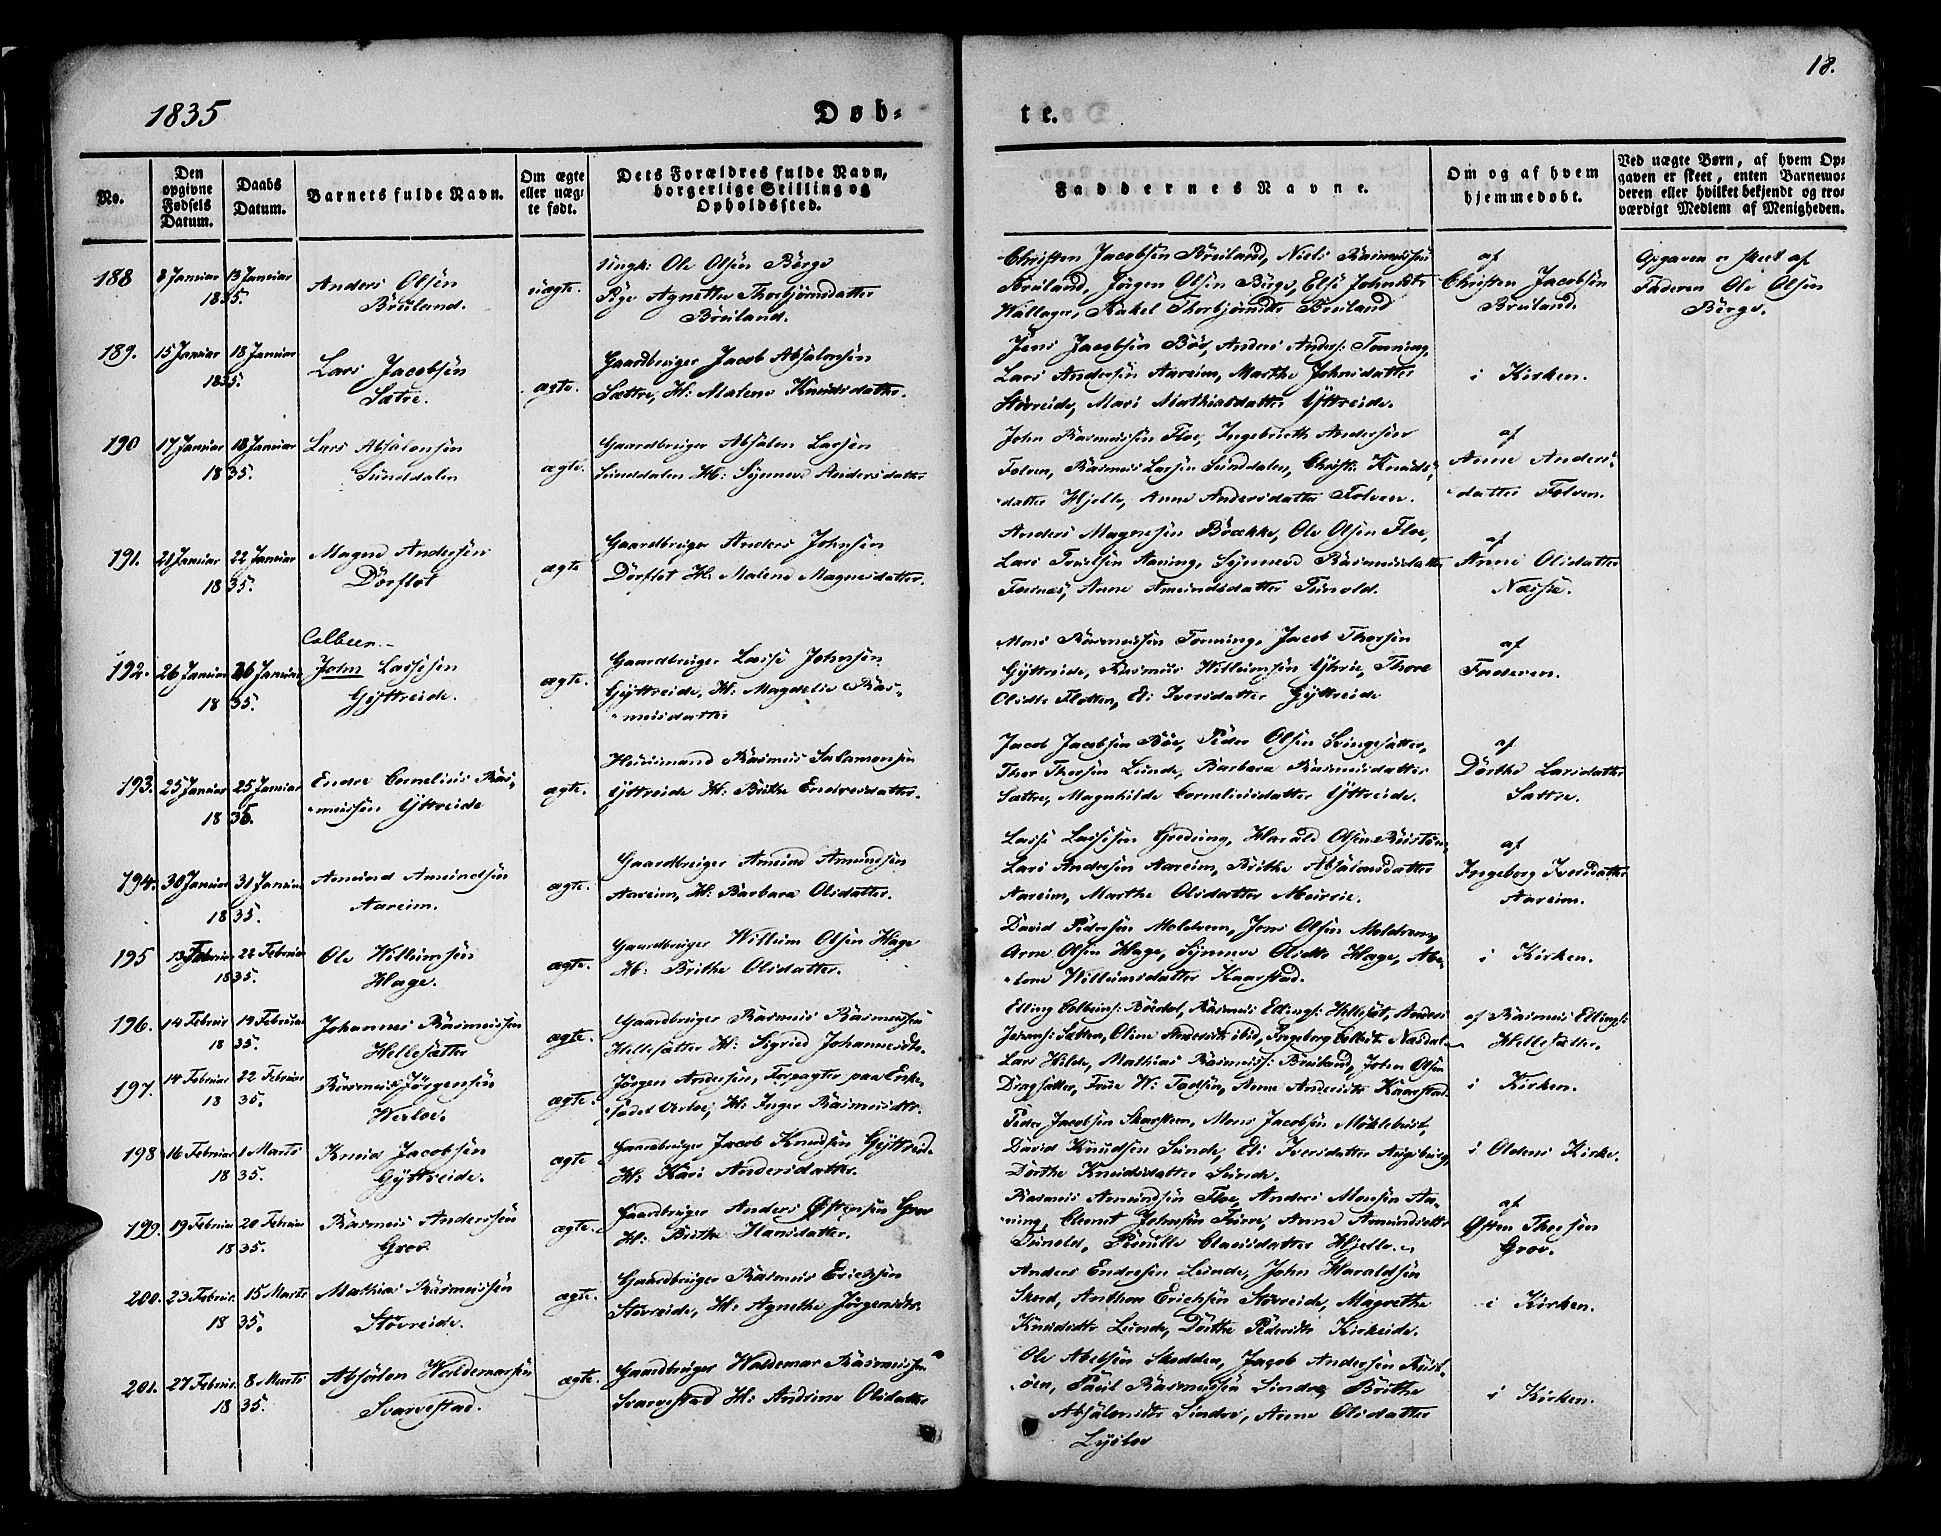 18.
1835
Døb-
te.
No.
Den opgivne Fødsels Datum.
Daabs Datum.
Barnets fulde Navn.
Om ægte eller uægte født.
Dets Forældres fulde Navn, borgerlige Stilling og Opholdssted.
Faddernes Navne.
Om og af hvem hjemmedøbt.
Ved uægte Børn, af hvem Op-
gaven er skeet, enten Barnemo-
deren eller hvilket bekjendt og tro-
værdigt Medlem af Menigheden.
188 8 Januar 13 Januar 1835.
Anders Olsen
Breiland.
uægte.
Ungk: Ole Olsen Berge
Pige Agnethe Thorbjørnsdatter
Breiland.
Christen Jacobsen Breiland, Niels Rasmussen
Breiland, Jørgen Olsen Berge, Else Johnsdtr
Wollager, Rakel Thorbjørnsdtr Breiland
af
Christen Jacobsen
Breiland.
Opgaven er skeet af
Faderen Ole Olsen
Berge.
189. 15 Januar 18 Januar 1835.
Lars Jacobsen
Sætre.
ægte.
Gaardbruger Jacob Absalonsen
Sættre, H: Malene Knudsdatter.
Jens Jacobsen Böe, Anders Anders: Tonning,
Lars Andersen Aareim, Marthe Johnsdatter
Stövreide, Mari Mathiasdatter Yttreide.
i Kirken.
190 17 Januar 18 Januar 1835.
Lars Absalonsen
Sunddalen
ægte.
Gaardbruger Absalon Larsen
Sunddalen H: Synneve Andersdatter
John Rasmussen Floe, Ingebrigth Andersen
Folven, Rasmus Larsen Sunddalen, Christi Knuds-
datter Hjelle, Anne Andersdatter Folven.
af
Anne Anders-
datter Folven.
191. 21 Januar 22 Januar 1835.
Magne Andersen
Dörflot
ægte
Gaardbruger Anders Johnsen
Dörflot H: Malene Magnesdatter.
Anders Magnesen Bække, Ole Olsen Floe,
Lars Aaning, Synneve Rasmusdatter
Anne Amundsdatter Tunold.
af
Anne Olsdatter
Næsse.
192. 26 Januar 26 Januar 1835.
Colbeen.-
John Lassesen
Gÿttreide.
ægte.
Gaardbruger Lasse Johnsen
Gÿttreide, H: Magdelie Ras-
musdatter
Mons Rasmussen Tonning, Jacob Thorsen
Gÿttreide, Rasmus Willumsen Thore
Olsdtr Flotten, Eli Iversdatter Gÿttreide
af
Faderen.
193. 25 Januar 25 Januar 1835.
Endre Cornelius Ras-
mussen Yttreide
ægte.
Huusmand Rasmus Salamonsen
Yttreide H: Brithe Endresdatter.
Jacob Jacobsen Böe, Peder Olsen Svingesætter,
Thor Thorsen Lunde, Barbara Rasmusdatter
Sættre, Magnhilde Corneliusdatter Yttreide.
af
Dorthe Larsdatter
Sættre.
194. 30 Januar 31 Januar 1835.
Amund Amundsen
Aareim.
ægte.
Gaardbruger Amund Amundsen
Aareim, H: Barbara Olsdatter.
Lasse Lassesen Greding, Harald Olsen
Lars Andersen Aareim, Brithe Absalonsdatter
Aareim, Marthe Olsdatter Muurie.
af
Ingeborg Iversdatter
Aareim.
195 13 Februar 22 Februar 1835.
Ole Willumsen
Hage.
ægte.
Gaardbruger Willum Olsen Hage
H: Brithe Olsdatter.
David Pedersen Moldreem, Jens Olsen Moldreem,
Arne Olsen Hage, Synneve Olsdtr Hage, Abe-
lone Willumsdatter Kaarstad.
i Kirken.
196. 14 Februar 19 Februar 1835.
Johannes Rasmussen
Hellesætter
ægte.
Gaardbruger Rasmus Rasmussen
Hellesætter H: Sigried Johannesdtr.
Elling Colbeins: Bördal, Rasmus Ellings: Anders
Johans: Sætter, Oline Andersdtr ibid, Ingeborg
af Rasmus Ellings:
Hellesætter.
197. 14 Februar 22 Februar 1835.
Rasmus Jörgensen
Werloe.
ægte.
Jörgen Andersen, Forpagter paa Enke-
sædet Verloe, H: Inger Rasmusdtr.
Lars Hilde, Mathias Rasmuss: Breiland, John Olsen
Dragsætter, Frue W: Anne Andersdtr Kaarstad.
i Kirken.
198 16 Februar 1 Marts 1835.
Knud Jacobsen
Gÿttreide.
ægte
Gaardbruger Jacob Knudsen Gÿttreid.
H: Kari Andersdatter.
Peder Jacobsen Skarsteen, Mons Jacobsen
David Knudsen Sunde, Eli Iversdatter
Dorthe Knudsdatter Sunde.
i Oldens Kirke.
199. 19 Februar 20 Februar 1835.
Rasmus Anderssen
Grov.
ægte.
Gaardbruger Anders Østensen Grov
H: Brithe Hansdatter.
Rasmus Amundsen Floe, Anders Monsen Aa-
ning, Clemet Johnsen Anne Amundsdtr
Tunold, Pernille Clausdatter Hjelle.
af
Østen Thorsen
Grov.
200. 23 Februar. 15 Marts 1835.
Mathias Rasmussen
Stövreide.
ægte.
Gaardbruger Rasmus Erichsen
Stövreide, H: Agnethe Jörgensdtr.
Anders Endresen Lunde, John Haraldsen
Skeed, Anthon Erichsen Stövreide, Magrethe
Knudsdtr Lunde, Dorthe Pedersdtr Kirkeide.
i Kirken.
201. 27 Februar. 8 Marts 1835.
Absalon Waldemarsen
Svarvestad.
ægte.
Gaardbruger Waldemar Rasmussen
Svarvestad H: Andrine Olsdatter
Ole Abelsen Skodden, Jacob Andersen Rust-
öen, Paul Rasmussen Sindre, Brithe
Absalonsdtr Sindre, Anne Olsdatter
Lysloe
i Kirken.